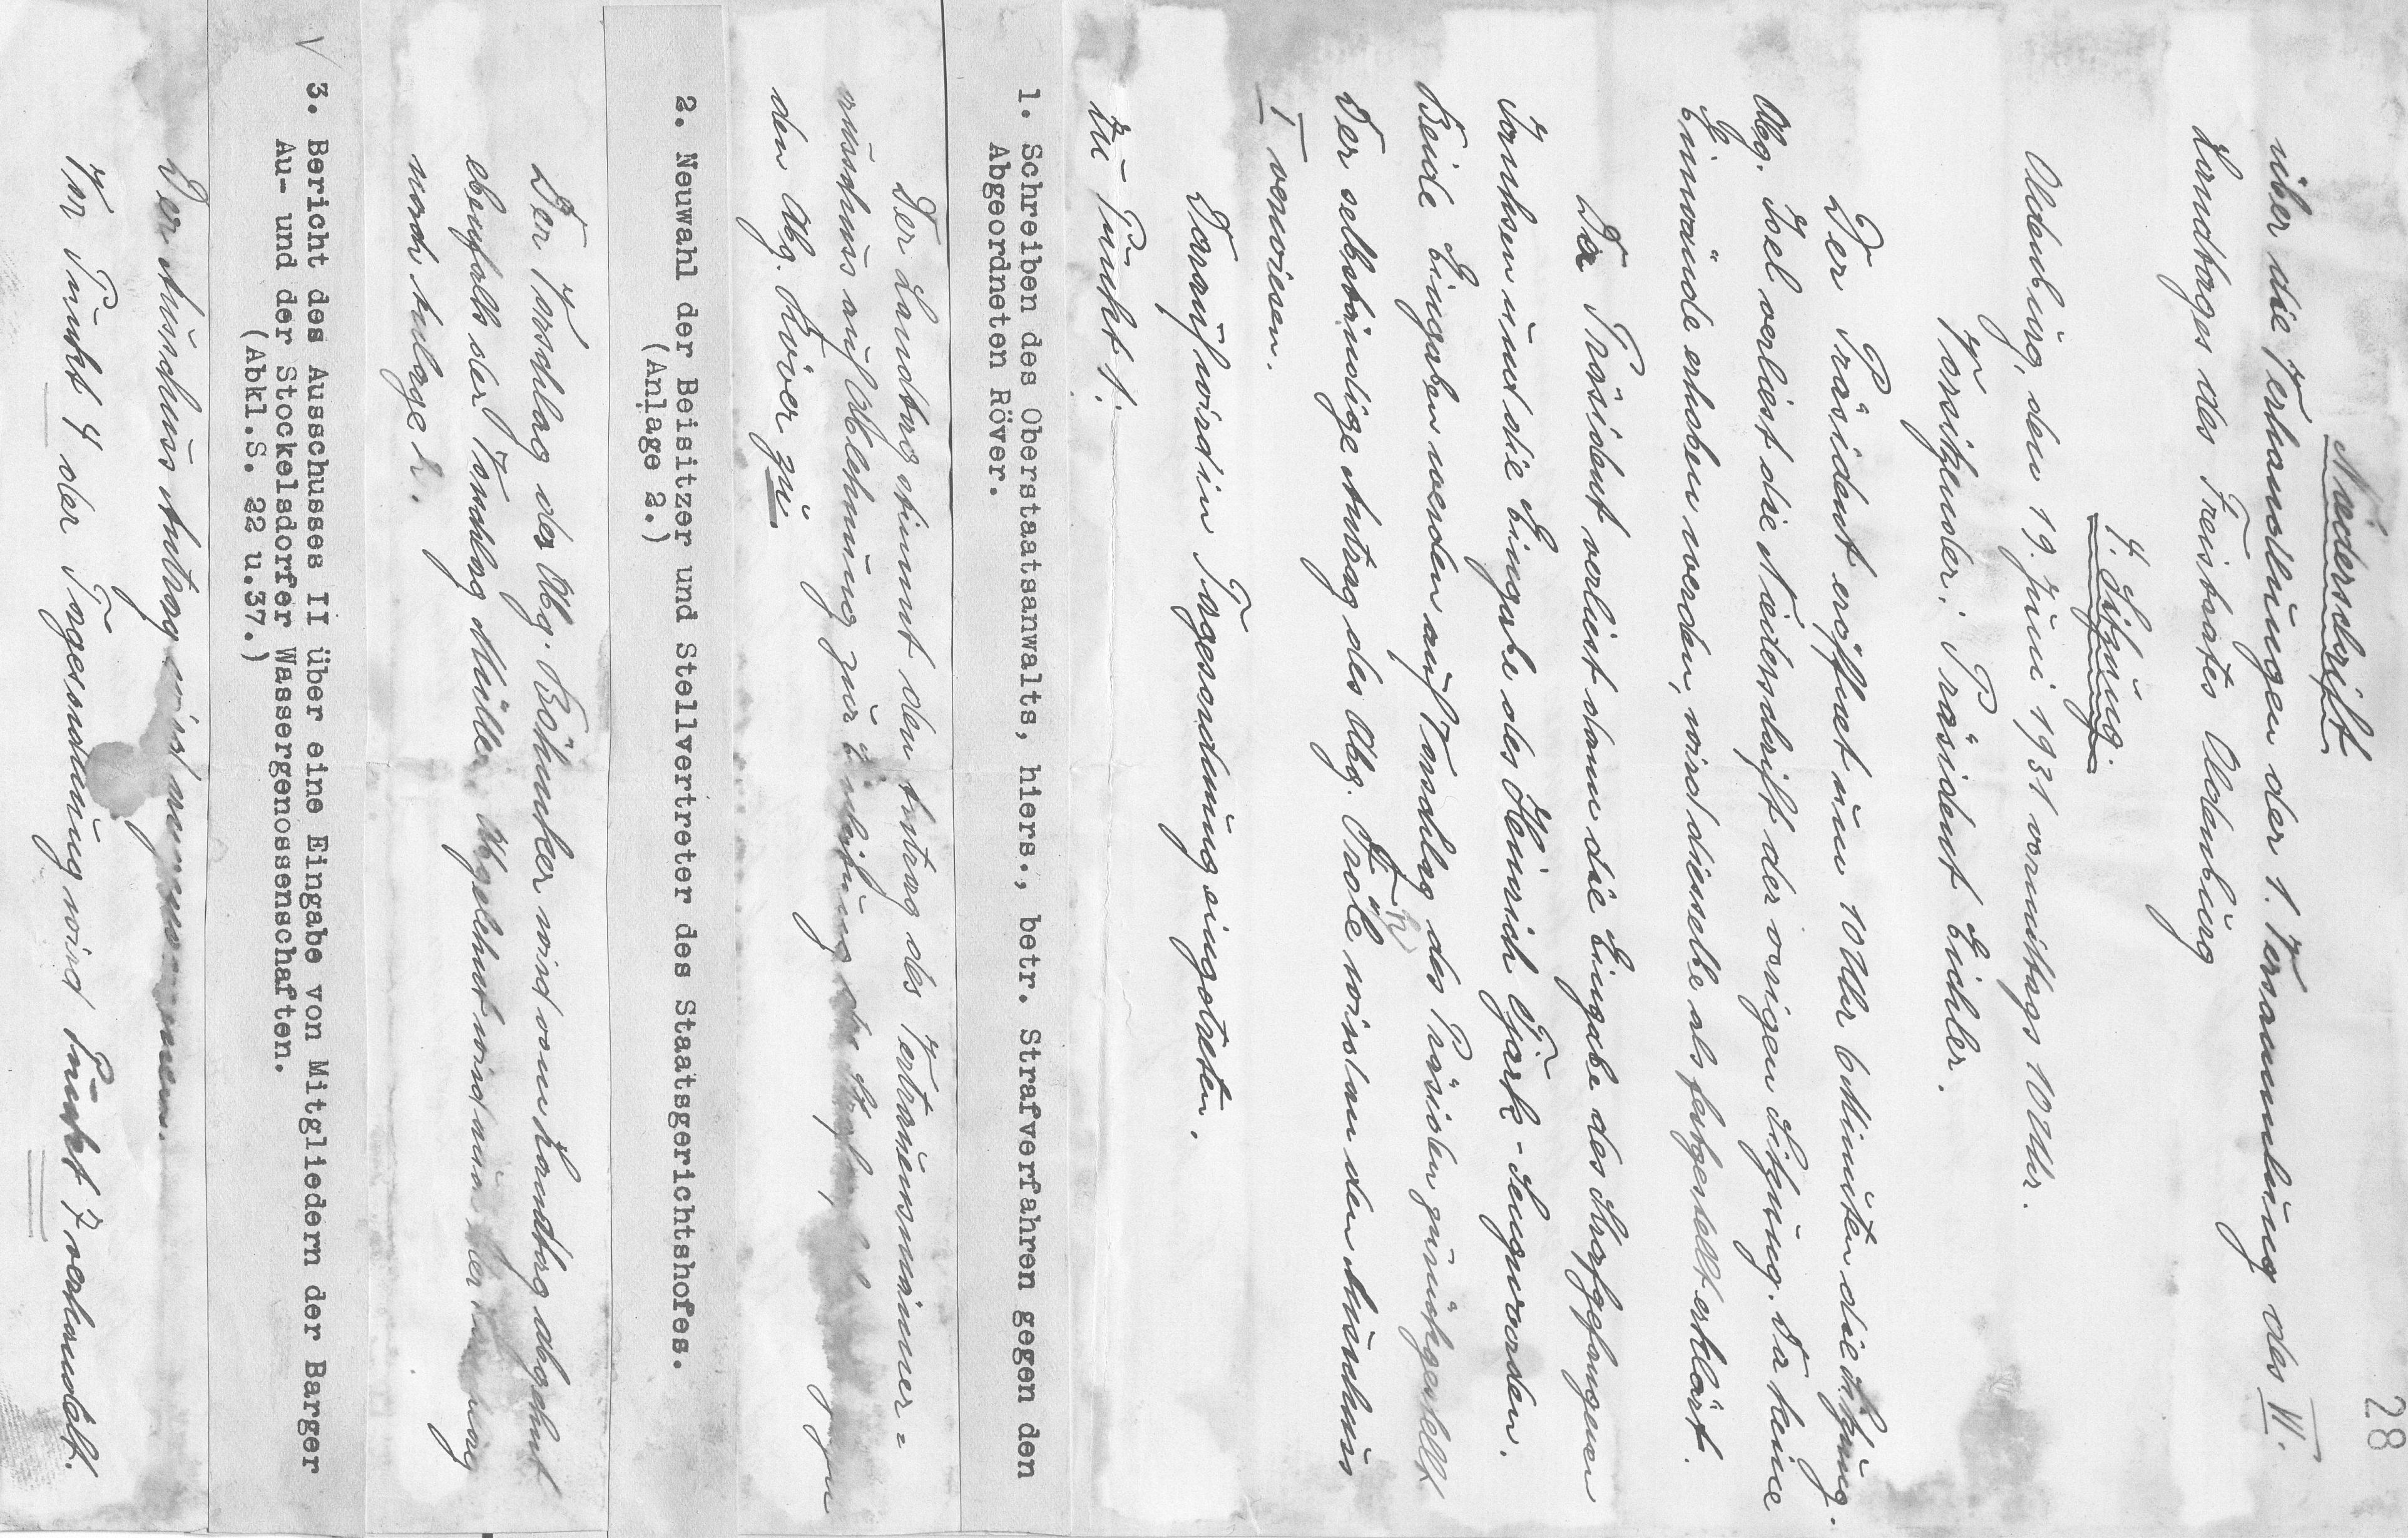 28
Niederschrift
über die Verhandlungen der 1. Versammlung des VI.
Landtages des Freistaates Oldenburg
4. Sitzung.
Oldenburg, den 19. Juni 1931 vormittags 10 Uhr.
Vorsitzender: Präsident Eichler.
Der Präsident eröffnet um 10 Uhr 6 Minuten die Sitzung.
Abg. verliest die Niederschrift der vorigen Sitzung. Da keine
Einwände erhoben werden, wird dieselbe als festgestellt erklärt.
Der Präsident verliest dann die Eingabe des Strafgefangenen
und die Eingabe des Heinrich Tjark-Lengwarden.
Beide Eingaben werden auf Vorschlag des Präsidenten zurückgestellt
Der selbständige Antrag des Abg. Fröhle wird an den Ausschuss
I verwiesen.
Darauf wird in Tagesordnung eingetreten.
Zu Punkt 1.
1. Schreiben des Oberstaatsanwalts, hiers., betr. Strafverfahren gegen den
Abgeordneten Röver.
Der Landtag stimmt den Antrag des Vertrauensmänner-
ausschuss auf Ablehnung zur gegen
den Abg. Röver zu.
2. Neuwahl der Beisitzer und Stellvertreter des Staatsgerichtshofes.
(Anlage 2.)
Der Vorschlag des Abg. Böhmker wird vom Landtag abgelehnt
ebenfalls der Vorschlag Müller. Abgelehnt wird auch der
nach Anlage 2.
3. Bericht des Ausschusses II über eine Eingabe von Mitgliedern der Barger
Au- und der Stockelsdorfer Wassergenossenschaften.
(Abkl.S. 22 u.37.)
Der Ausschuss Antrag wird angenommen.
Vor Punkt 4 der Tagesordnung wird Punkt 7 verhandelt.